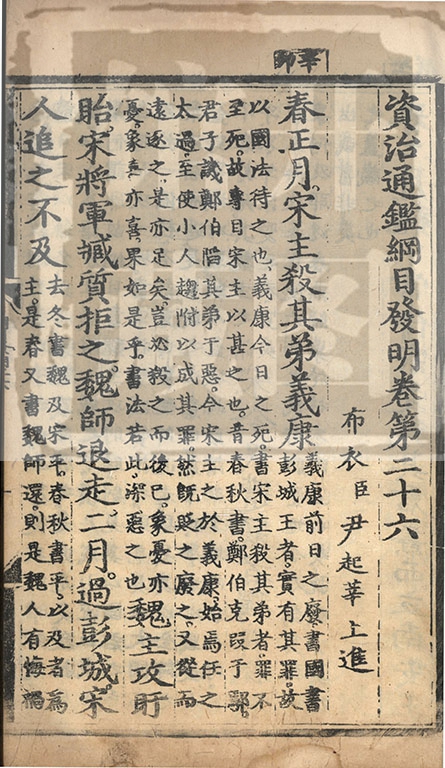 資治通鑑綱目發明卷第二十六
布衣臣尹起莘上進
春正月宋主殺其弟義康
義康前日之廢書國書
彭城王者實有其罪故
以國法待之也義康今日之死書宋主殺其弟者罪不
至死故專目宋主以甚之也昔春秋書鄭伯克段于鄢
君子譏鄭伯陷其弟于惡今宋主之於義康始焉任之
太過至使小人趨附以成其罪然既貶之廢之又從而
遠逐之是亦足矣豈必殺之而後已象憂亦
憂象喜亦喜果如是乎書法若此深惡之也
魏主攻盱
眙宋將軍臧質拒之魏師退走二月過彭城宋
人追之不及
去冬書魏及宋平春秋書平以及者為
主是春又書魏師還則是魏人有悔禍